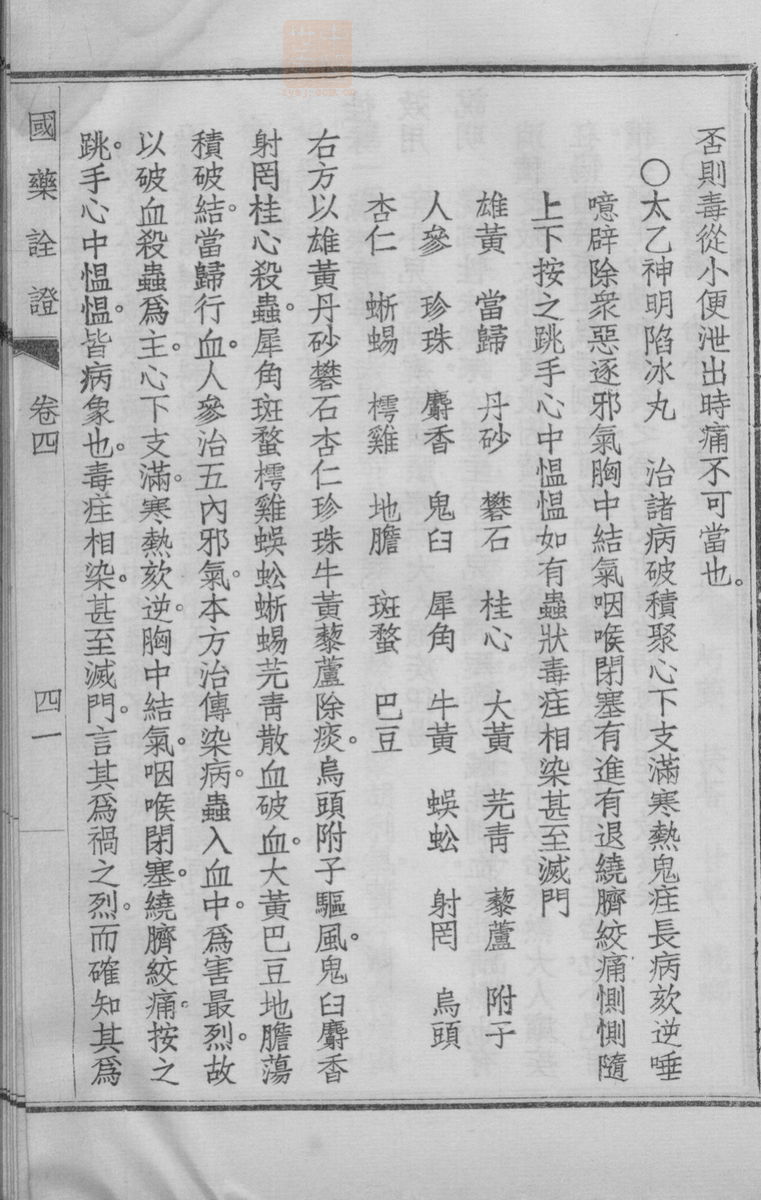 否則毒從小便泄出時痛不可當也。
〇太乙神明陷冰丸　治諸病破積聚心下支滿寒熱鬼疰長病欬逆唾
噫辟除衆惡逐邪氣胸中結氣咽喉閉塞有進有退繞臍絞痛惻惻隨
上下按之跳手心中愠愠如有蟲狀毒疰相染甚至滅門
雄黃　當歸　丹砂　礬石　桂心　大黃　芫青　藜蘆　附子
人參　珍珠　麝香　鬼臼　犀角　牛黃　蜈蚣　射罔　烏頭
杏仁　蜥蜴　樗雞　地膽　斑蝥　巴豆
右方以雄黃丹砂礬石杏仁珍珠牛黃藜蘆除痰。烏頭附子驅風。鬼臼麝香
射罔桂心殺蟲。犀角斑蝥樗雞蜈蚣蜥蜴芫青散血破血。大黃巴豆地膽蕩
積破結。當歸行血。人參治五內邪氣。本方治傳染病。蟲入血中。爲害最烈。故
以破血殺蟲爲主。心下支滿。寒熱欬逆。胸中結氣。咽喉閉塞。繞臍絞痛。按之
跳。手心中愠愠。皆病象也。毒疰相染。甚至滅門。言其爲禍之烈。而確知其爲
國藥詮證
卷四
四一